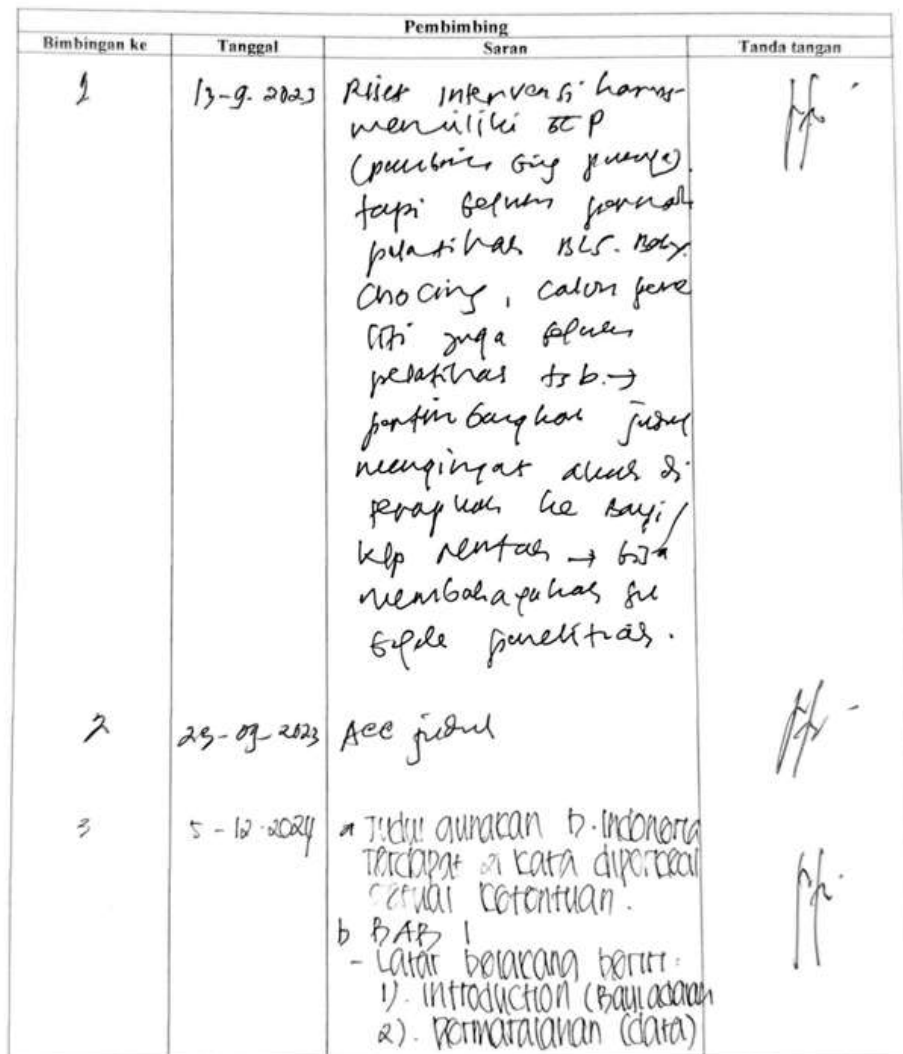 Pembimbing
Bimbingan ke Tanggal Saran Tanda tangan
1 13-9-2023 Riset intervensi harus
memiliki
tapi belum pernah
pelatihan BLS. Baby
Chocing, calon pene
liti juga belum
pelatihan tsb. →
pertimbangkan judul
mengingat akan di
terapkan ke Bayi/
klp rentan → bisa
membahayakan su
byek penelitian.
2 29-09-2023 ACC judul
3 5-12-2024 a Judul gunakan b. Indonesia
Terdapat 21 kata diperkecil
sesuai ketentuan.
b BAB 1
- Latar belakang berisi:
1). Introduction (Bayi adalah
2). Permasalahan (data)